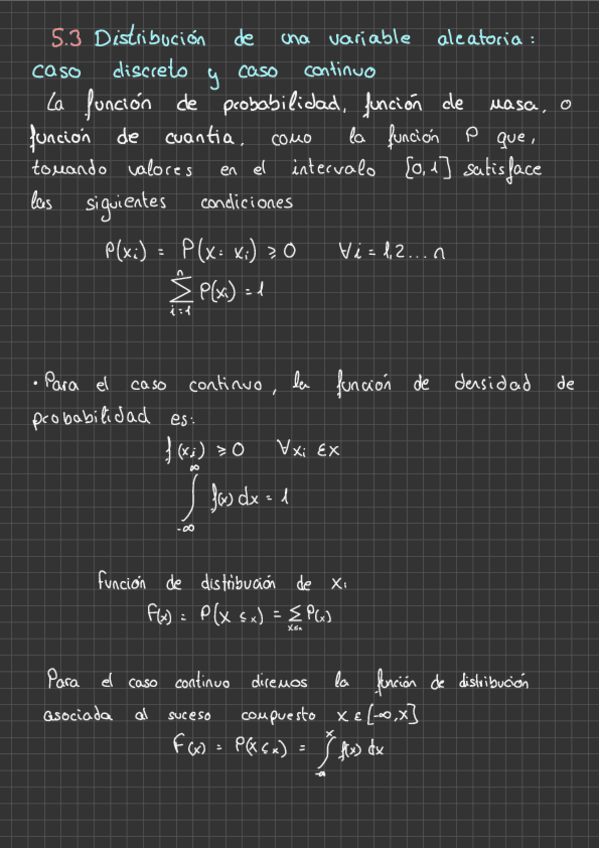 5.3 Distribución de una variable aleatoria:
caso discreto y caso continuo
La función de probabilidad, función de masa, o
función de cuantia, como la función P que,
tomando valores en el intervalo [0,1] satisface
las siguientes condiciones
P(xi) = P(x=xi) ⩾ 0 ∀i = 1,2...n
n
∑ P(xi) = 1
i=1
• Para el caso continuo, la función de densidad de
probabilidad es:
f(xi) ⩾ 0 ∀xi εx
∞
∫ f(x) dx = 1
-∞
función de distribución de x:
F(x) = P(X ⩽x) = ∑ P(x)
x⩽x
Para el caso continuo diremos la función de distribución
asociada al suceso compuesto x ε [-∞,x]
x
F(x) = P(X⩽x) = ∫ f(x) dx
-∞